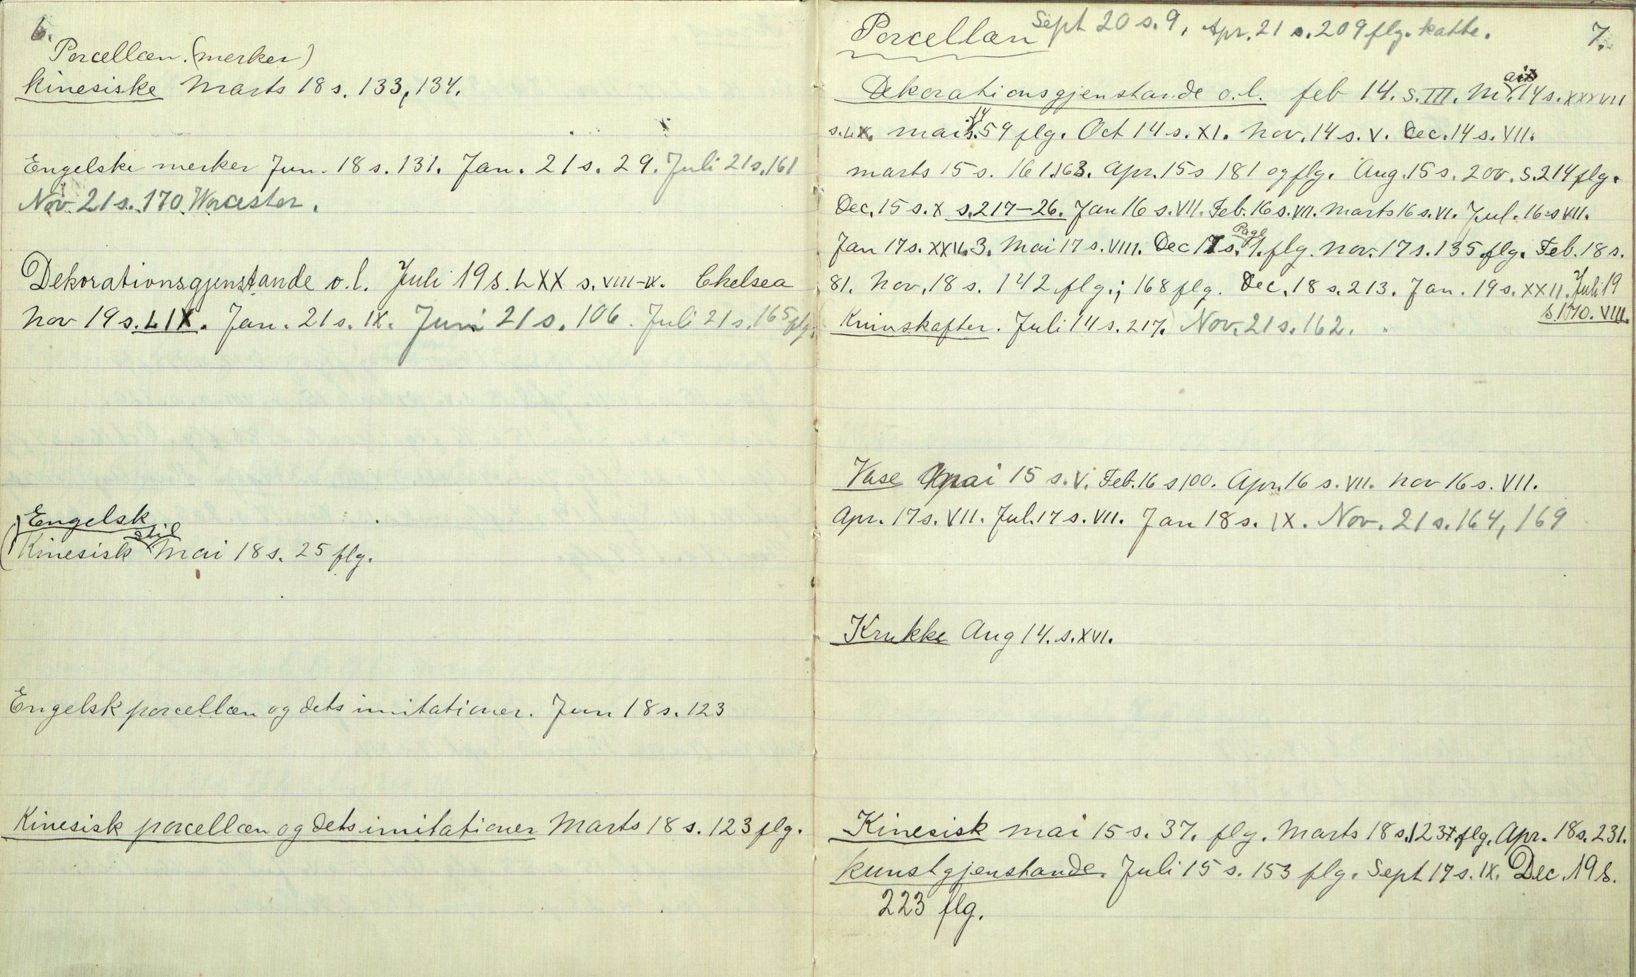 6.
Porcellæn. (merker)
kinesiske Marts 18 s. 133, 134.
Engelske merker Jun. 18 s. 131. Jan. 21 s. 29. Juli 21 s. 161
Nov. 21 s. 170 Worcester.
Dekorationsgjenstande o.l. Juli 19 s. LXX s. VIII-IX. Chelsea
Nov 19 s. LIX. Jan. 21 s. IX. Juni 21 s. 106. Juli 21 s. 165 flg.
Engelsk
Kinesisk stil Mai 18 s. 25 flg.
Engelsk porcellæn og dets imitationer. Jun 18 s. 123
Kinesisk porcellæn og dets imitationer Marts 18 s. 123 flg.
Porcellæn Sept 20 s. 9, Apr. 21 s. 209 flg. katte. 7.
Dekorationsgjenstande o.l. feb 14. s. III. 14 s. XXXVII
s. LX. mai 14 s. 59 flg. Oct 14 s. XI. Nov. 14 s. V. Dec. 14 s. VII.
marts 15 s. 161. 163. Apr. 15 s 181 og flg. Aug. 15 s. 200. s. 214 flg.
Dec. 15 s. X s. 217-26. Jan 16 s. VII. Feb. 16 s. VII. Marts 16 s. VI. Jul. 16 s VII.
Jan 17 s. 3. Mai 17 s. VIII. Dec 17 s. Page 1. flg. Nov. 17 s. 135 flg. Feb. 18 s.
81. Nov. 18 s. 142 flg.; 168 flg. Dec. 18 s. 213. Jan. 19 s. XXII. Juli 19
s 170. VIII.
Knivskafter. Juli 14 s. 217. Nov. 21 s. 162.
Vase Mai 15 s. V. Feb. 16 s 100. Apr. 16 s. VII. Nov 16 s. VII.
Apr. 17 s. VII. Jul. 17 s. VII. Jan 18 s. IX. Nov. 21 s. 164, 169
Krukke Aug 14. s. XVI.
Kinesisk mai 15 s. 37. flg. Marts 18 s. 123 flg. Apr. 18 s. 231.
kunstgjenstande. Juli 15 s. 153 flg. Sept 17 s. IX. Dec. 19 s.
223 flg.